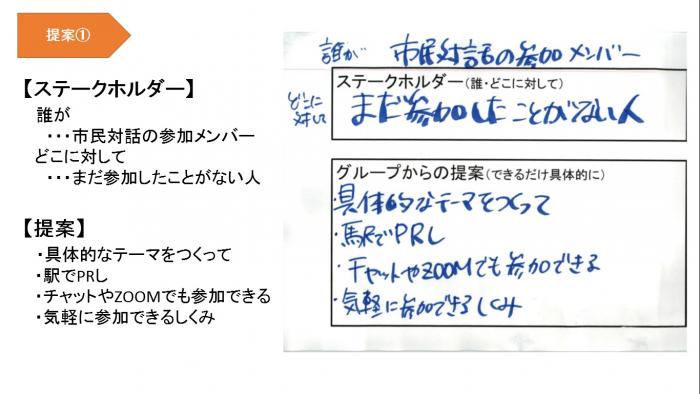 提案①
【ステークホルダー】
誰が
・・・市民対話の参加メンバー
どこに対して
・・・まだ参加したことがない人
【提案】
・具体的なテーマをつくって
・駅でPRし
・チャットやZOOMでも参加できる
・気軽に参加できるしくみ
誰が 市民対話の参加メンバー
どこに
対して
ステークホルダー(誰・どこに対して)
まだ参加したことがない人
グループからの提案(できるだけ具体的に)
・具体的なテーマをつくって
・駅でPRし
・チャットやZOOMでも参加できる
・気軽に参加できるしくみ